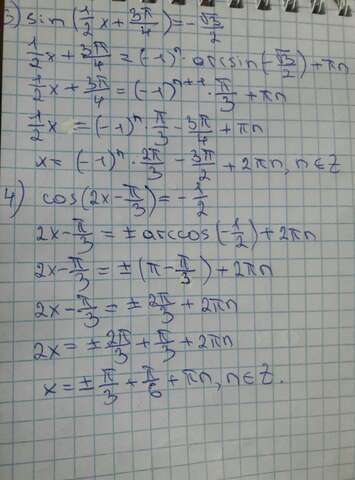 3) sin(1/2 x + 3π/4) = -√3/2
1/2 x + 3π/4 = (-1)ⁿ · arcsin(-√3/2) + πn
1/2 x + 3π/4 = (-1)ⁿ⁺¹ · π/3 + πn
1/2 x = (-1)ⁿ · π/3 - 3π/4 + πn
x = (-1)ⁿ · 2π/3 - 3π/2 + 2πn, n∈Z
4) cos(2x - π/3) = -1/2
2x - π/3 = ± arccos(-1/2) + 2πn
2x - π/3 = ± (π - π/3) + 2πn
2x - π/3 = ± 2π/3 + 2πn
2x = ± 2π/3 + π/3 + 2πn
x = ± π/3 + π/6 + πn, n∈Z.